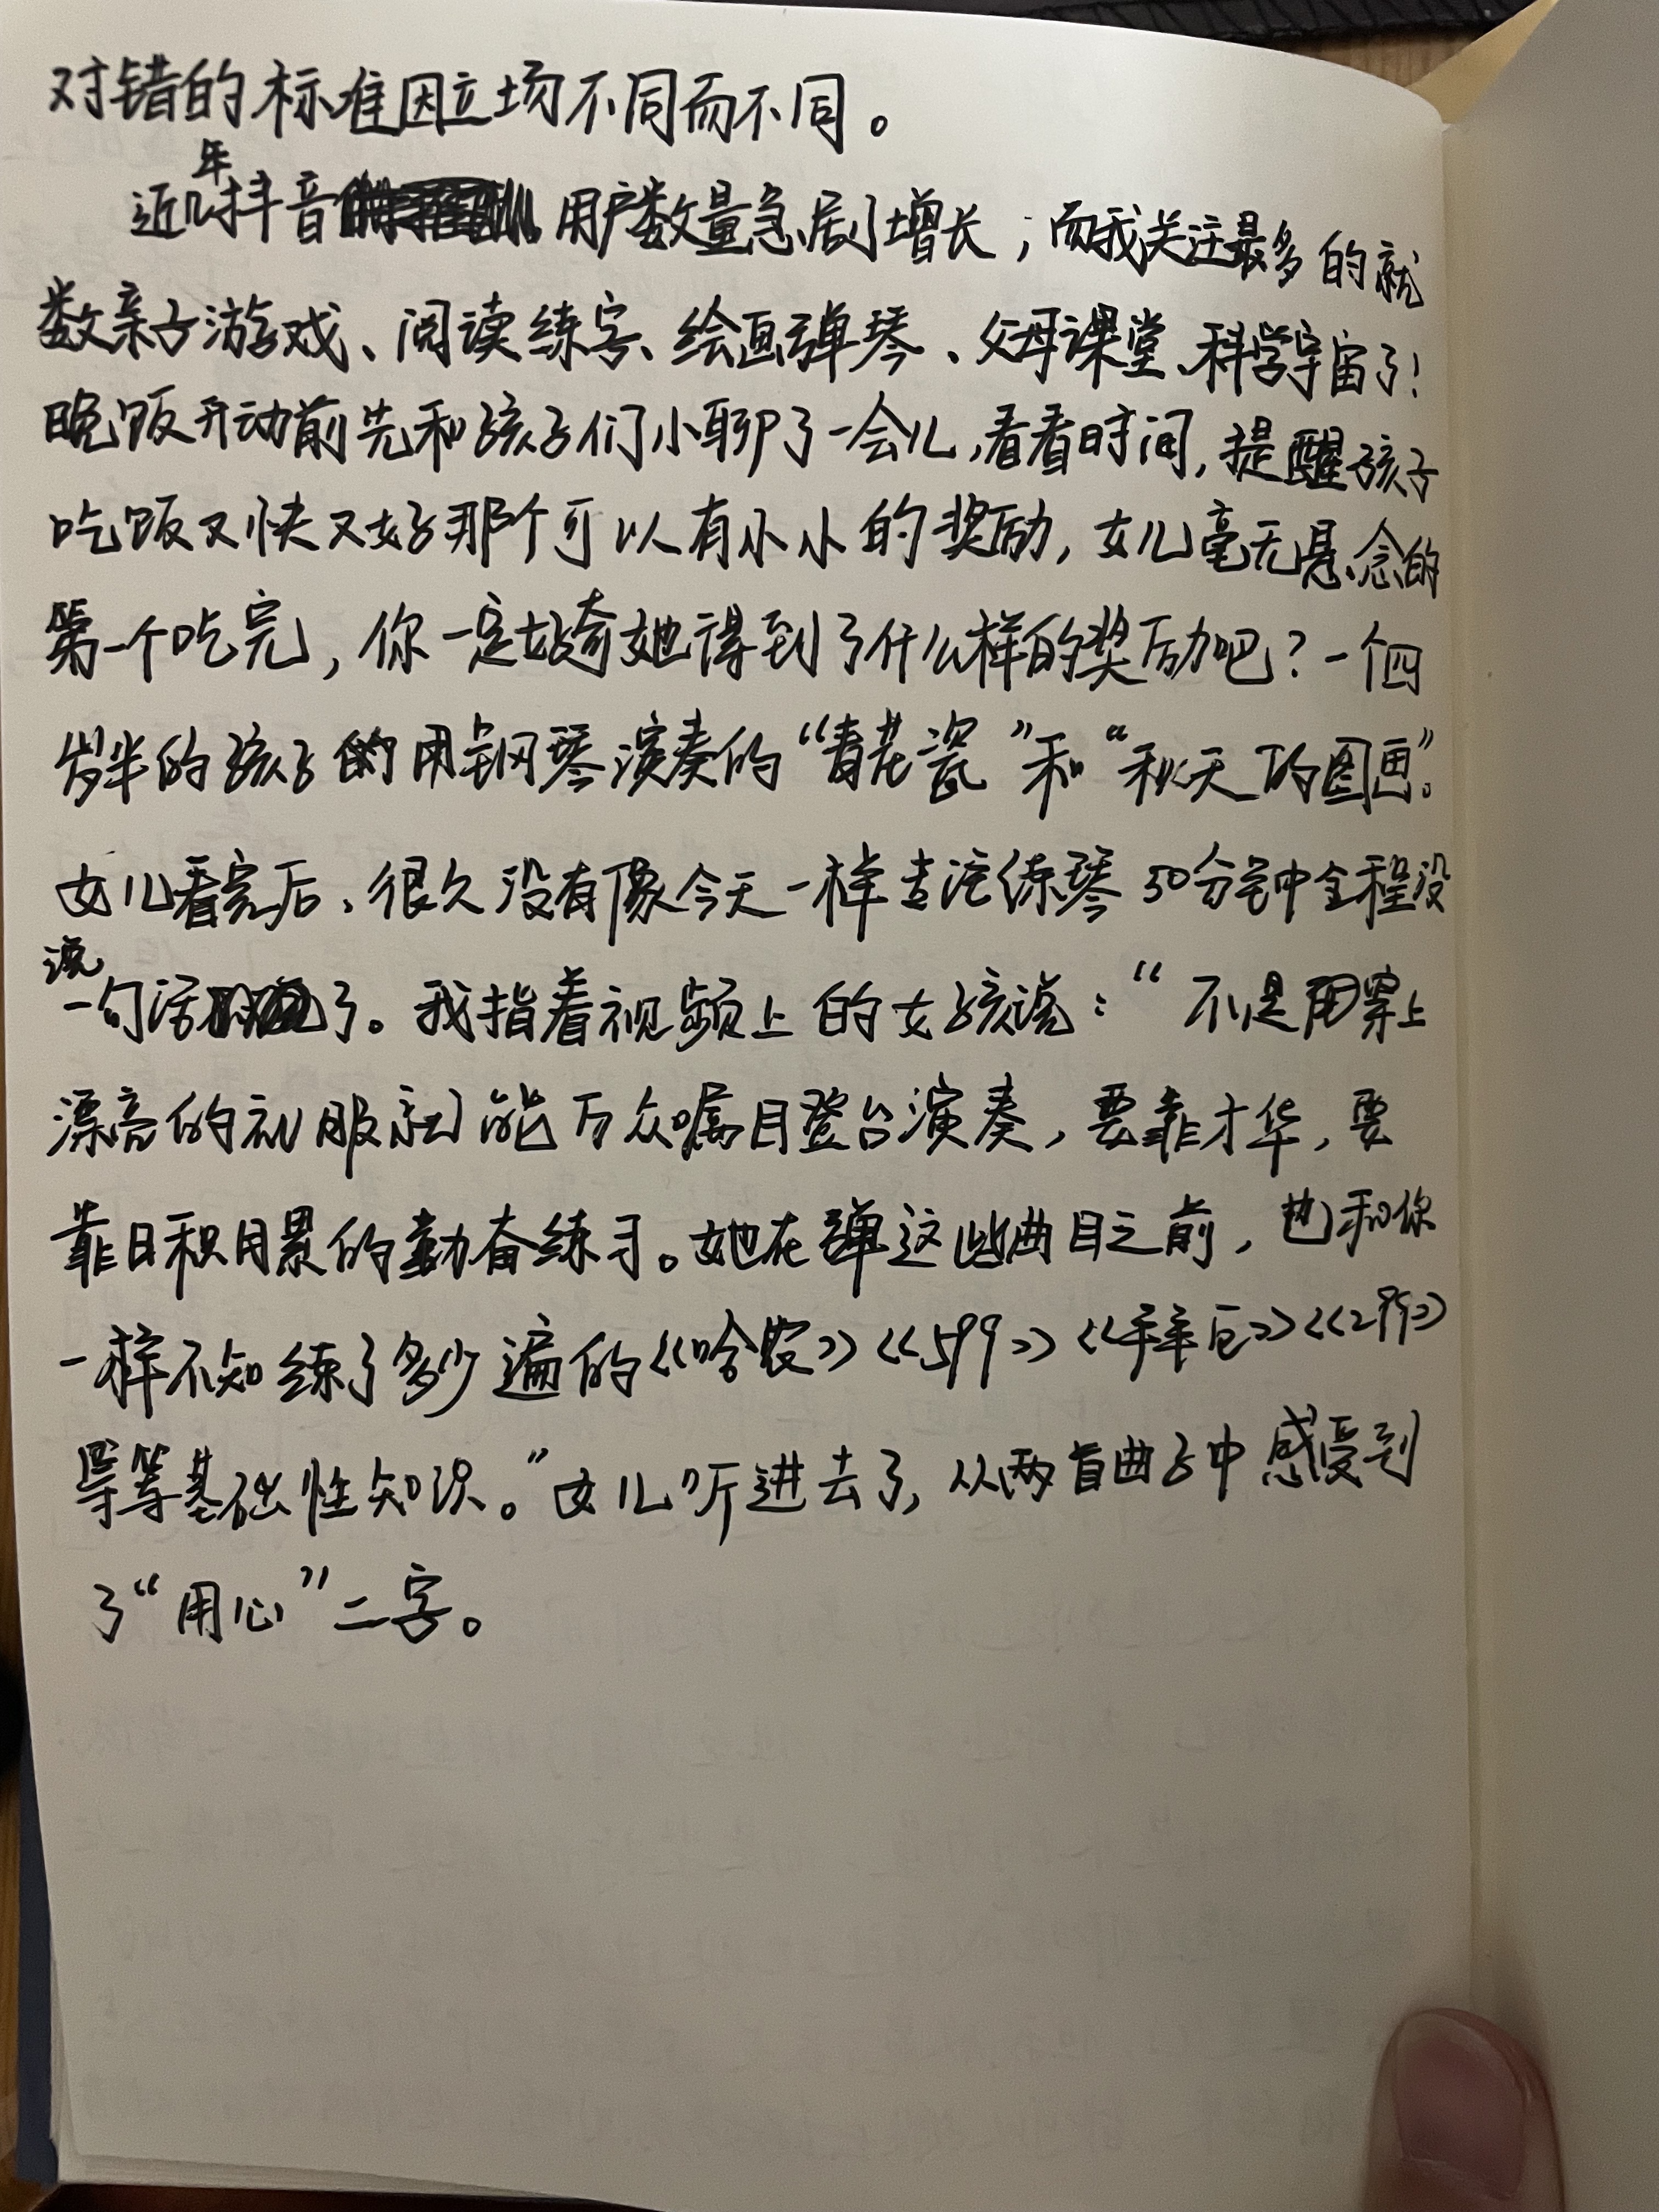 对错的标准因立场不同而不同。
近几年抖音用户数量急剧增长，而我关注最多的就
数亲子游戏、阅读练字、绘画弹琴、父母课堂、科学宇宙了！
晚饭开动前先和孩子们小聊了一会儿，看看时间，提醒孩子
吃饭又快又好那个可以有小小的奖励，女儿毫无悬念的
第一个吃完，你一定好奇她得到了什么样的奖励吧？一个四
岁半的孩子用钢琴演奏的“青花瓷”和“秋天的图画”。
女儿看完后、很久没有像今天一样专注练琴50分钟中全程没
说一句话了。我指着视频上的女孩说：“不是用穿上
漂亮的礼服就能万众嘱目登台演奏，要靠才华，要
靠日积月累的勤奋练习。她在弹这些曲目之前，也和你
一样不知练了多少遍的《哈农》《599》《拜厄》《299》
等等基础性知识。”女儿听进去了，从两首曲子中感受到
了“用心”二字。